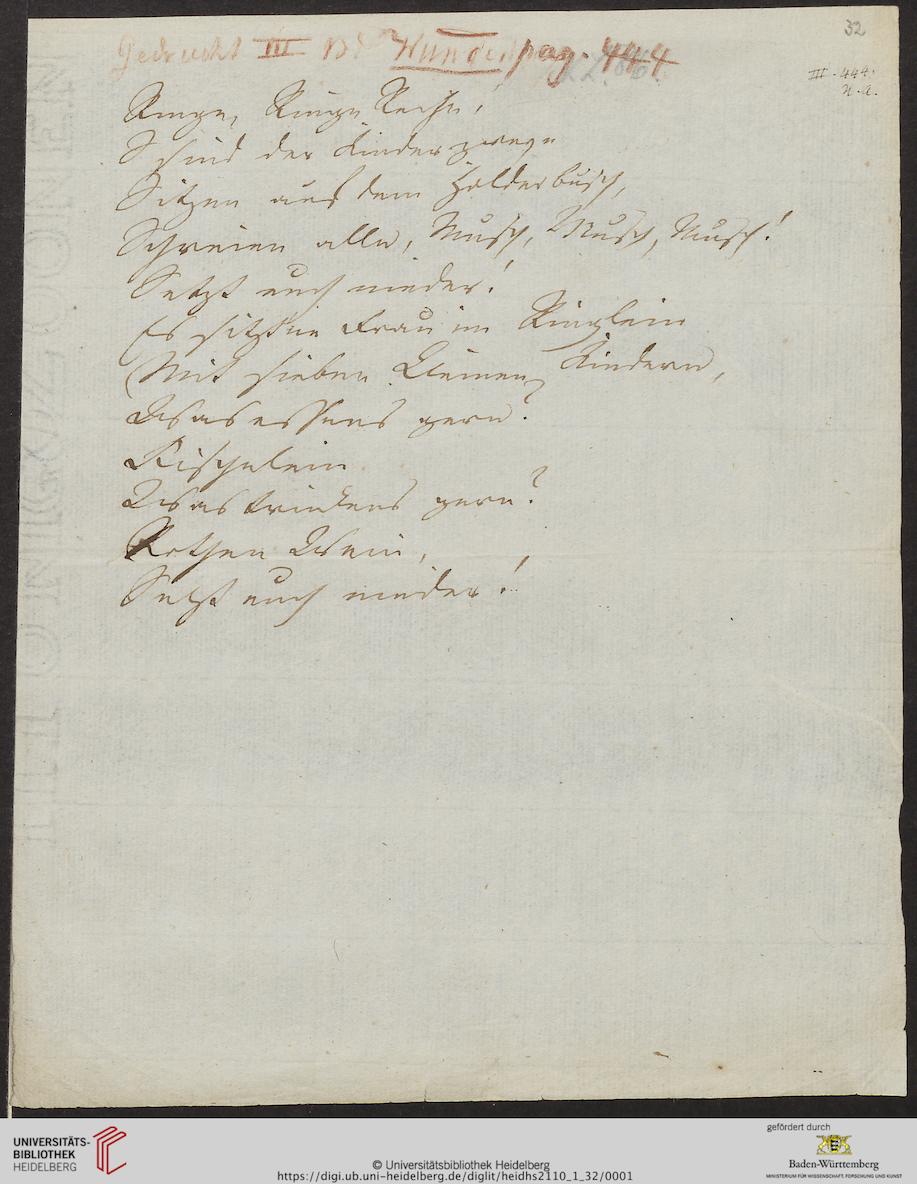 32
Gedruckt III Bd Wunderh pag. 444
III. 444.
u. a.
Ringe, Ringe Reihe,
S sind der Kinder zweye
Sitzen auf dem Holderbusch,
Schreien alle, Musch, Musch, Musch!
Setzt euch nieder!
Es sitzt ne Frau im Ringlein
Mit sieben kleinen Kindern,
Was essens gern?
Fischelein
Was trinkens gern?
Rothen Wein,
Setzt euch nieder!
UNIVERSITÄTS-
BIBLIOTHEK
HEIDELBERG
© Universitätsbibliothek Heidelberg
https://digi.ub.uni-heidelberg.de/diglit/heidhs2110_1_32/0001
gefördert durch
Baden-Württemberg
MINISTERIUM FÜR WISSENSCHAFT, FORSCHUNG UND KUNST